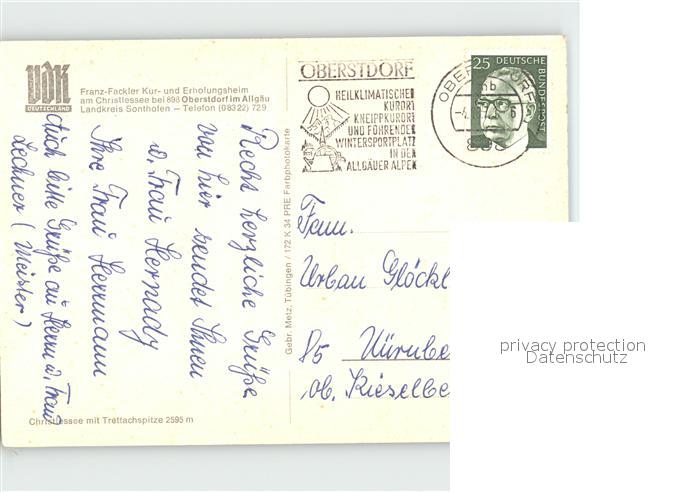 VDK
DEUTSCHLAND
Franz-Fackler Kur- und Erholungsheim
am Christlessee bei 898 Oberstdorf im Allgäu
Landkreis Sonthofen – Telefon (08322) 729
Recht herzliche Grüße
von hier sendet Ihnen
u. Frau
Ihre Frau Herrmann
Auch bitte Grüße an Herrn u. Frau
Lechner (Meister)
Christlessee mit Trettachspitze 2595 m
Gebr. Metz, Tübingen / 172 K 34 PRE Farbphotokarte
OBERSTDORF
HEILKLIMATISCHER
KURORT
KNEIPPKURORT
UND FÜHRENDER
WINTERSPORTPLATZ
IN DEN
ALLGÄUER ALPEN
25 DEUTSCHE BUNDESPOST
OBERSTDORF
898
Fam.
Urban Glöckl
85 Nürnbe
ob. Kieselbe
privacy protection
Datenschutz